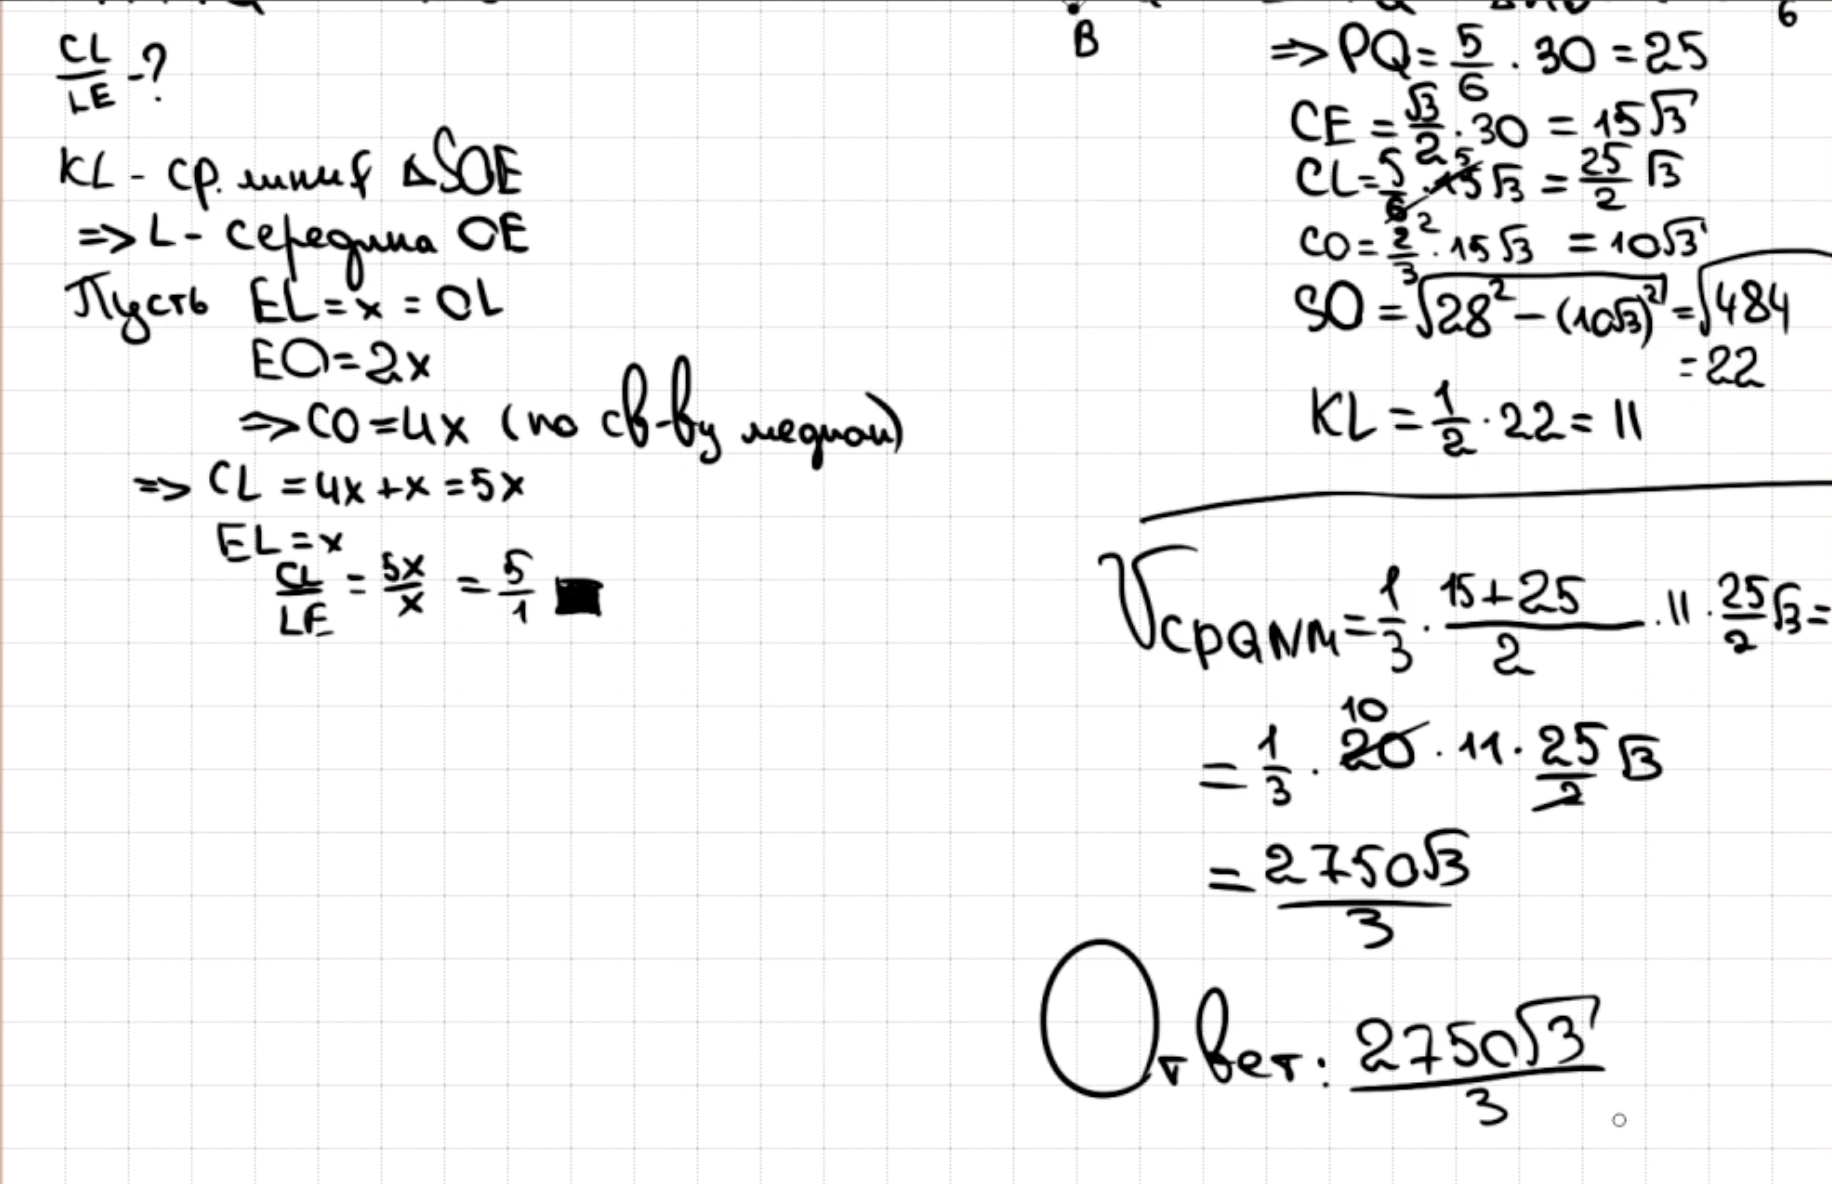 CL/LE - ?
KL - ср. линия ΔSOE
=> L - середина OE
Пусть EL = x = OL
EO = 2x
=> CO = 4x (по св-ву медиан)
=> CL = 4x + x = 5x
EL = x
CL/LE = 5x/x = 5/1
B
6
=> PQ = 5/6 · 30 = 25
CE = √3/2 · 30 = 15√3
CL = 5/6 · 15√3 = 25/2 √3
CO = 2/3 · 15√3 = 10√3
SO = √(28² - (10√3)²) = √484
= 22
KL = 1/2 · 22 = 11
V CPQNM = 1/3 · (15+25)/2 · 11 · 25/2 √3 =
= 1/3 · 20 10 · 11 · 25/2 √3
= 2750√3/3
Ответ: 2750√3/3